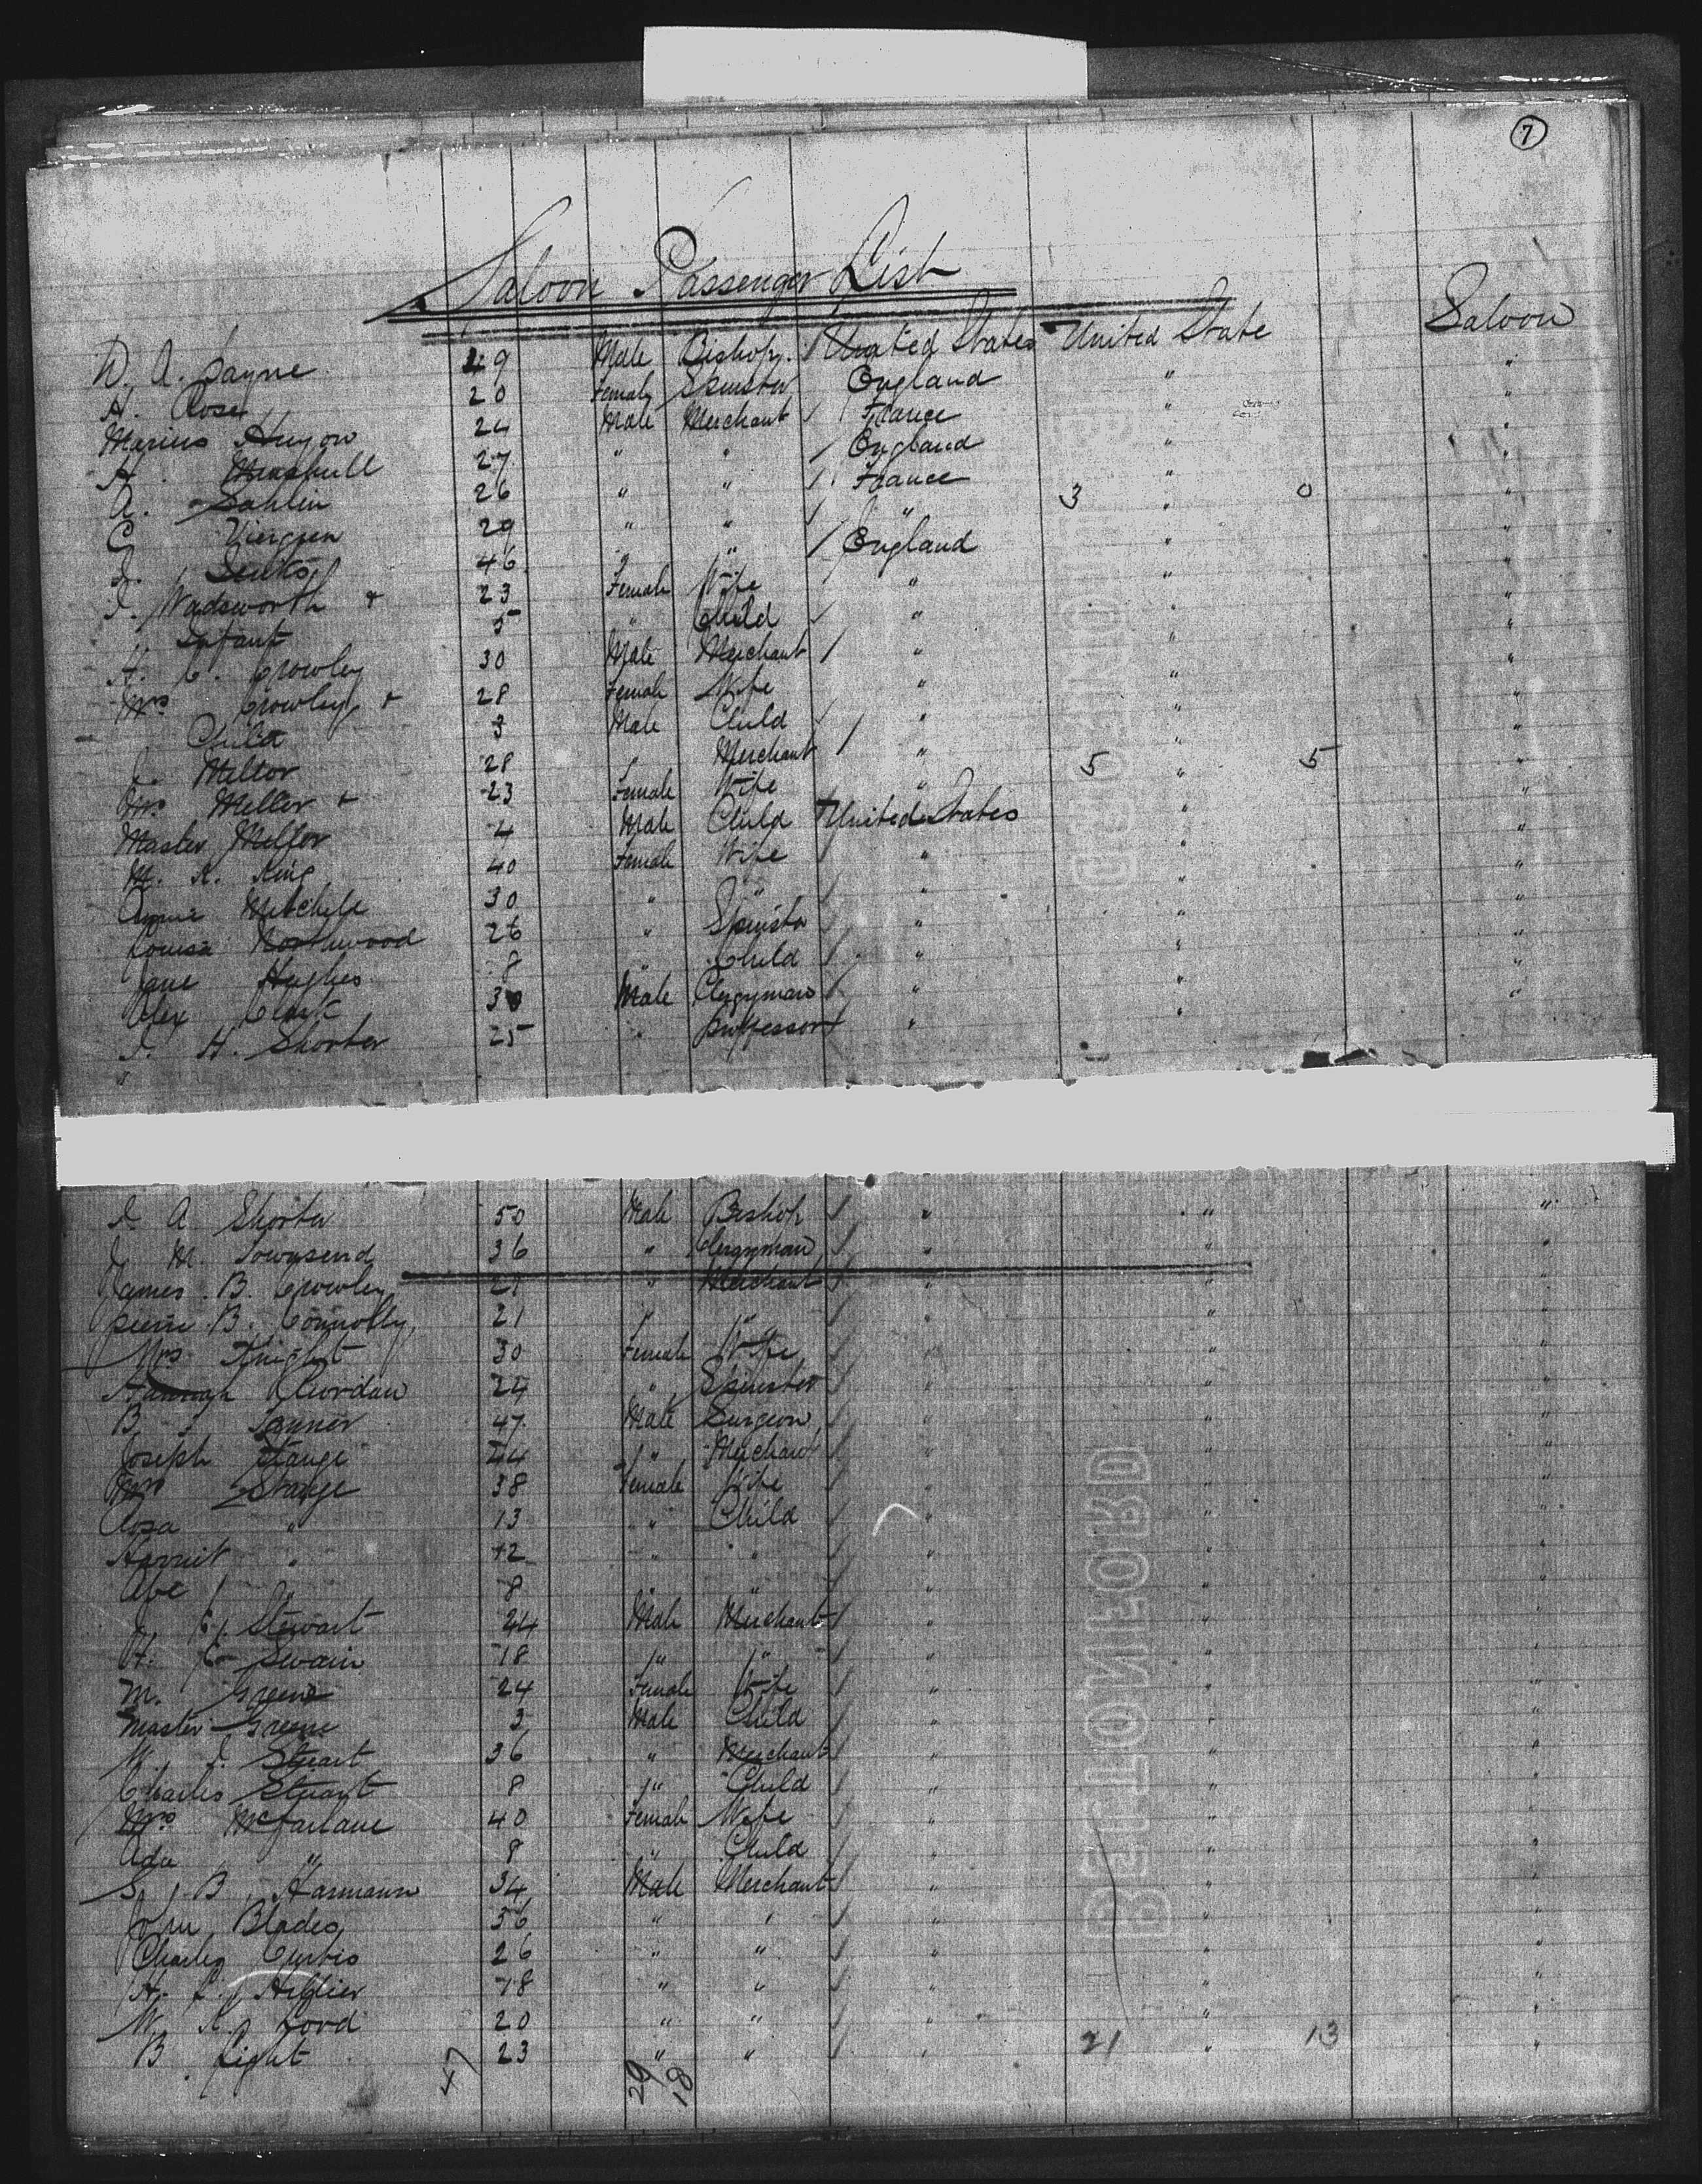 7
Saloon Passenger List
D. A. Payne 49 Male Bishop. United States United State Saloon
H. Rose 20 Female Spinster England " "
Marius Hugon 24 Male Merchant France " "
H. 27 " " England " "
A. Sahlin 26 " " France 3 " 0 "
C Viergpen 29 " " " " "
J. Jenks 46 " " England " "
J. Wadsworth + 23 Female Wife " " "
Infant 5 " Child " " "
H. C. Crowley 30 Male Merchant " " "
Mrs Crowley + 28 Female Wife " " "
Child 3 Male Child " " "
Mellor 28 " Merchant " 5 " 5 "
Mrs Mellor + 23 Female Wife " " "
Master Mellor 4 Male Child United States " "
M. K. King 40 Female Wife " " "
Annie Mitchell 30 " " " " "
Louisa Northwood 26 " Spinster " " "
Jane Hughes 8 " Child " " "
Alex Clark 30 Male Clergyman " " "
J. H. Shorter 25 " professor " " "
J A Shorter 50 Male Bishop " " "
J. M. Townsend 36 " Clergyman " " "
James B. Crowley 21 " Merchant " " "
B. Connolly 21 " " " " "
Mrs Knight 30 Female Wife " " "
Hannah Riordan 24 " Spinster " " "
B Tanner 47 Male Surgeon " " "
Joseph Stange 44 " Merchant " " "
Mrs Stange 38 Female Wife " " "
Rosa " 13 " Child " " "
Harriet " 12 " " " " "
Abe " 8 " " " " "
Stewart 24 Male Merchant " " "
H. C. Swain 18 " " " " "
M. Greene 24 Female Wife " " "
Master Greene 3 Male Child " " "
W. J. Stuart 36 " Merchant " " "
Charles Stuart 8 " Child " " "
Mrs McFarlane 40 Female Wife " " "
Ada " 8 " Child " " "
S. B. Harmann 34 Male Merchant " " "
John Blades 36 " " " " "
Charles Curtis 26 " " " " "
H. L. Hillier 18 " " " " "
W. K. Lord 20 " " " " "
B. Light 23 " " " 21 " 13 "
47 29 18
BETTONIFORD